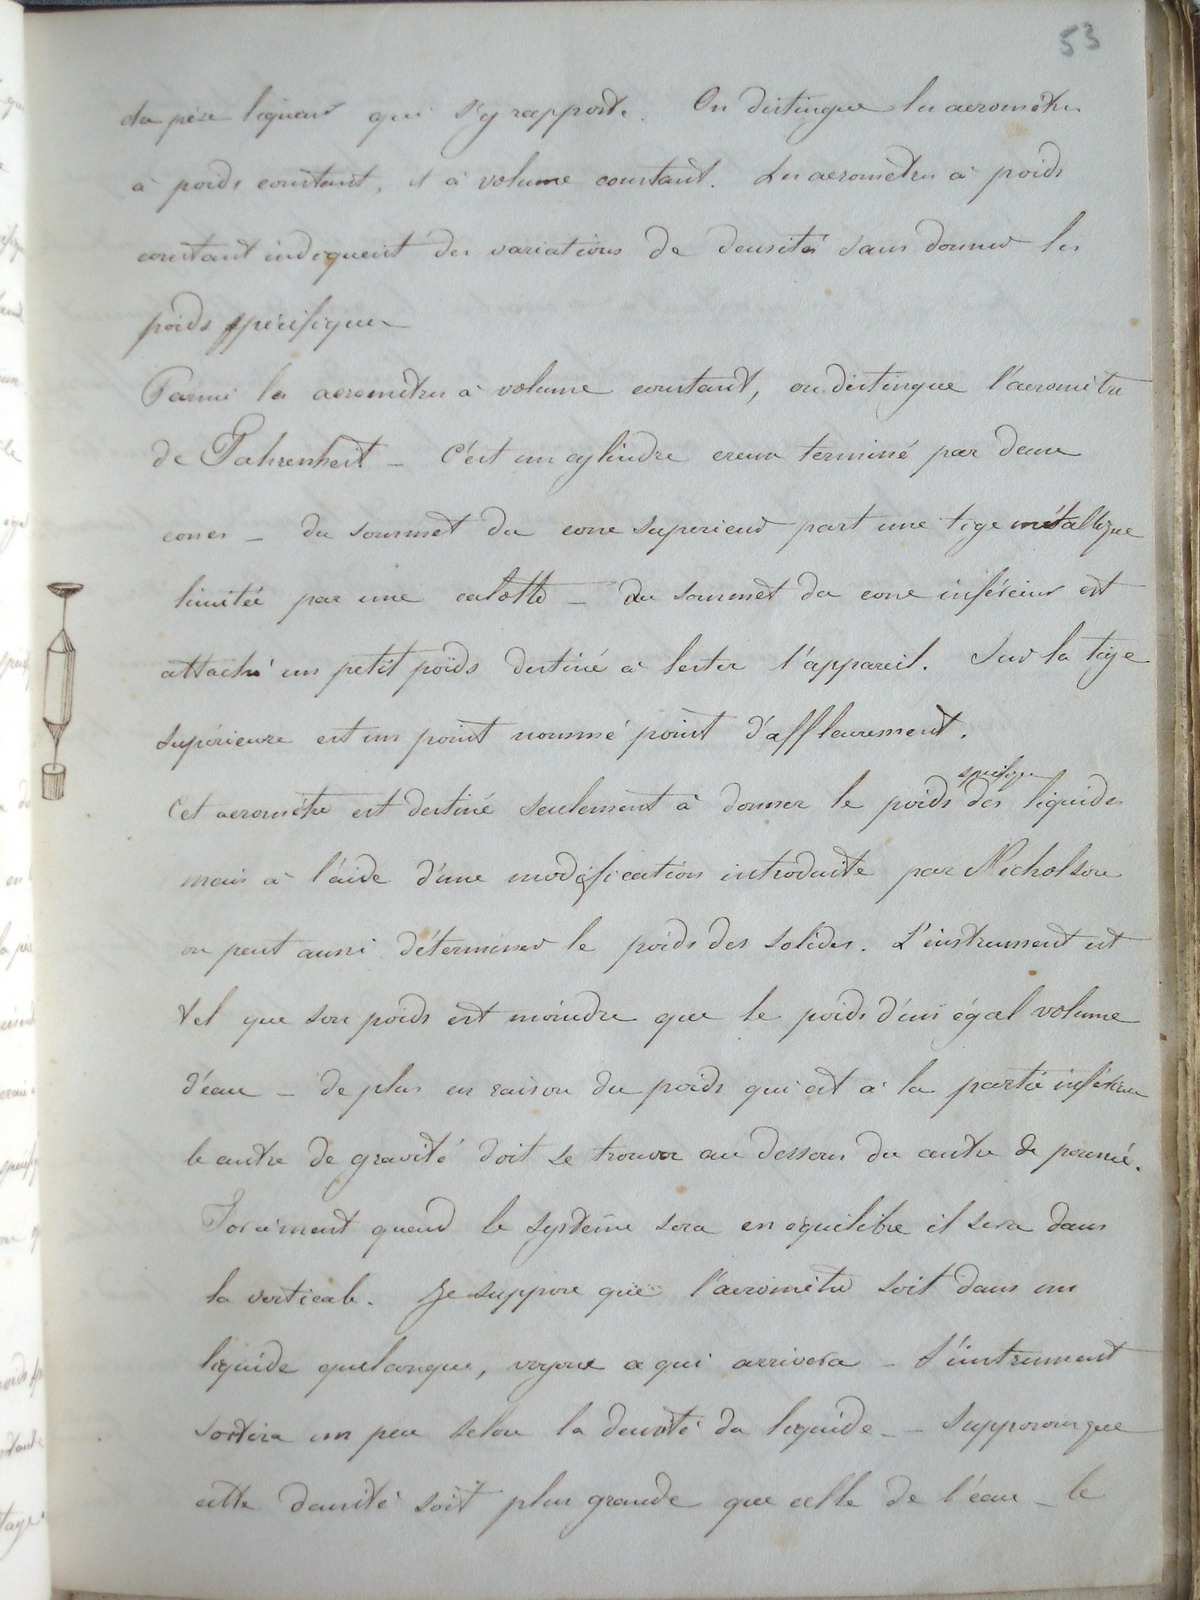 53
du pèse liqueur qui s'y rapporte. On distingue les aerometres
à poids constant, et à volume constant. Les aerometres à poids
constant indiquent des variations de densités sans donner les
poids spécifiques
Parmi les aerometres à volume constant, on distingue l'aerometre
de Fahrenheit _ C'est un cylindre creux terminé par deux
cones _ du sommet du cone superieur part une tige métallique
limitée par une calotte _ Au sommet du cone inférieur est
attaché un petit poids destiné à lester l'appareil. Sur la tige
supérieure est un point nommé point d'affleurement.
spécifique
Cet aerometre est destiné seulement à donner le poids des liquides
mais à l'aide d'une modification introduite par Nicholson
on peut aussi déterminer le poids des solides. L'instrument est
tel que son poids est moindre que le poids d'un égal volume
d'eau _ de plus en raison du poids qui est à la partie inférieure
le centre de gravité doit se trouver au dessous du centre de poussé.
Forcément quand le système sera en équilibre il sera dans
la verticale. Je suppose que l'aerometre soit dans un
liquide quelconque, voyons ce qui arrivera _ L'instrument
sortira un peu selon la densité du liquide _ Supposons que
cette densité soit plus grande que celle de l'eau _ le